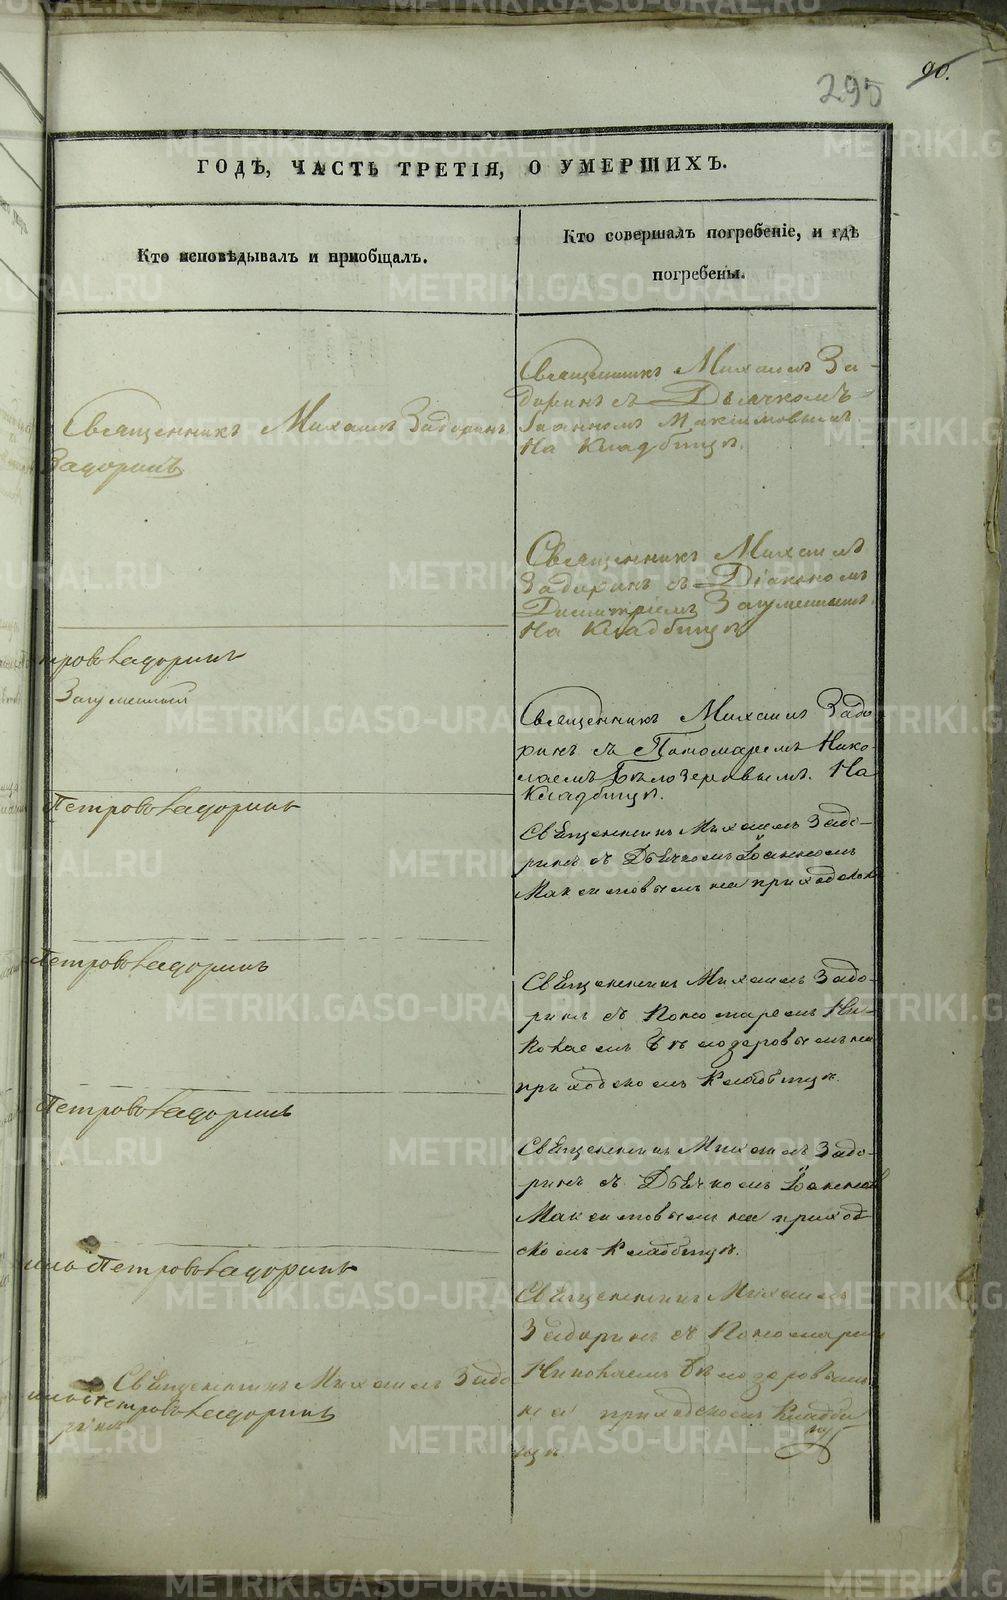 90.
295
ГОДѢ, ЧАСТЬ ТРЕТІЯ, О УМЕРШИХЪ.
Кто исповѣдывалъ и пріобщалъ.
Кто совершалъ погребеніе, и гдѣ
погребены.
Священникъ Михаилъ Задоринъ
Задоринъ
Священникъ Михаилъ За-
доринъ съ Дьячкомъ
Іоанномъ Максимовымъ
На Кладбищѣ.
Священникъ Михаилъ
Задоринъ съ Діакономъ
Димитріемъ
На Кладбищѣ
Задоринъ
Священникъ Михаилъ Задо
ринъ съ Пономаремъ Нико-
лаемъ Бѣлозеровымъ. На
Кладбищѣ.
Петрово Задоринъ
Священникъ Михаилъ Задо-
ринъ съ Дьячкомъ Іоанномъ
Максимовымъ на приходском
Петрово Задоринъ
Священникъ Михаилъ Задо-
ринъ съ Пономаремъ Ни-
колаемъ Бѣлозеровымъ на
приходскомъ Кладбищѣ.
Петрово Задоринъ
Священникъ Михаилъ Задо-
ринъ съ Дьячкомъ Іоанном
Максимовымъ на приход
скомъ Кладбищѣ.
Петрово Задоринъ
Священникъ Михаилъ
Задоринъ съ Пономарем
Николаемъ Бѣлозеровымъ
на приходскомъ Кладби
щѣ
Священникъ Михаилъ Задо
ринъ
Петровъ Задоринъ
METRIKI.GASO-URAL.RU